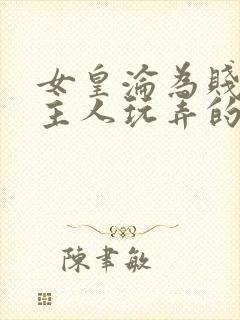 女皇淪為賤
主人玩弄的
陳聿敏